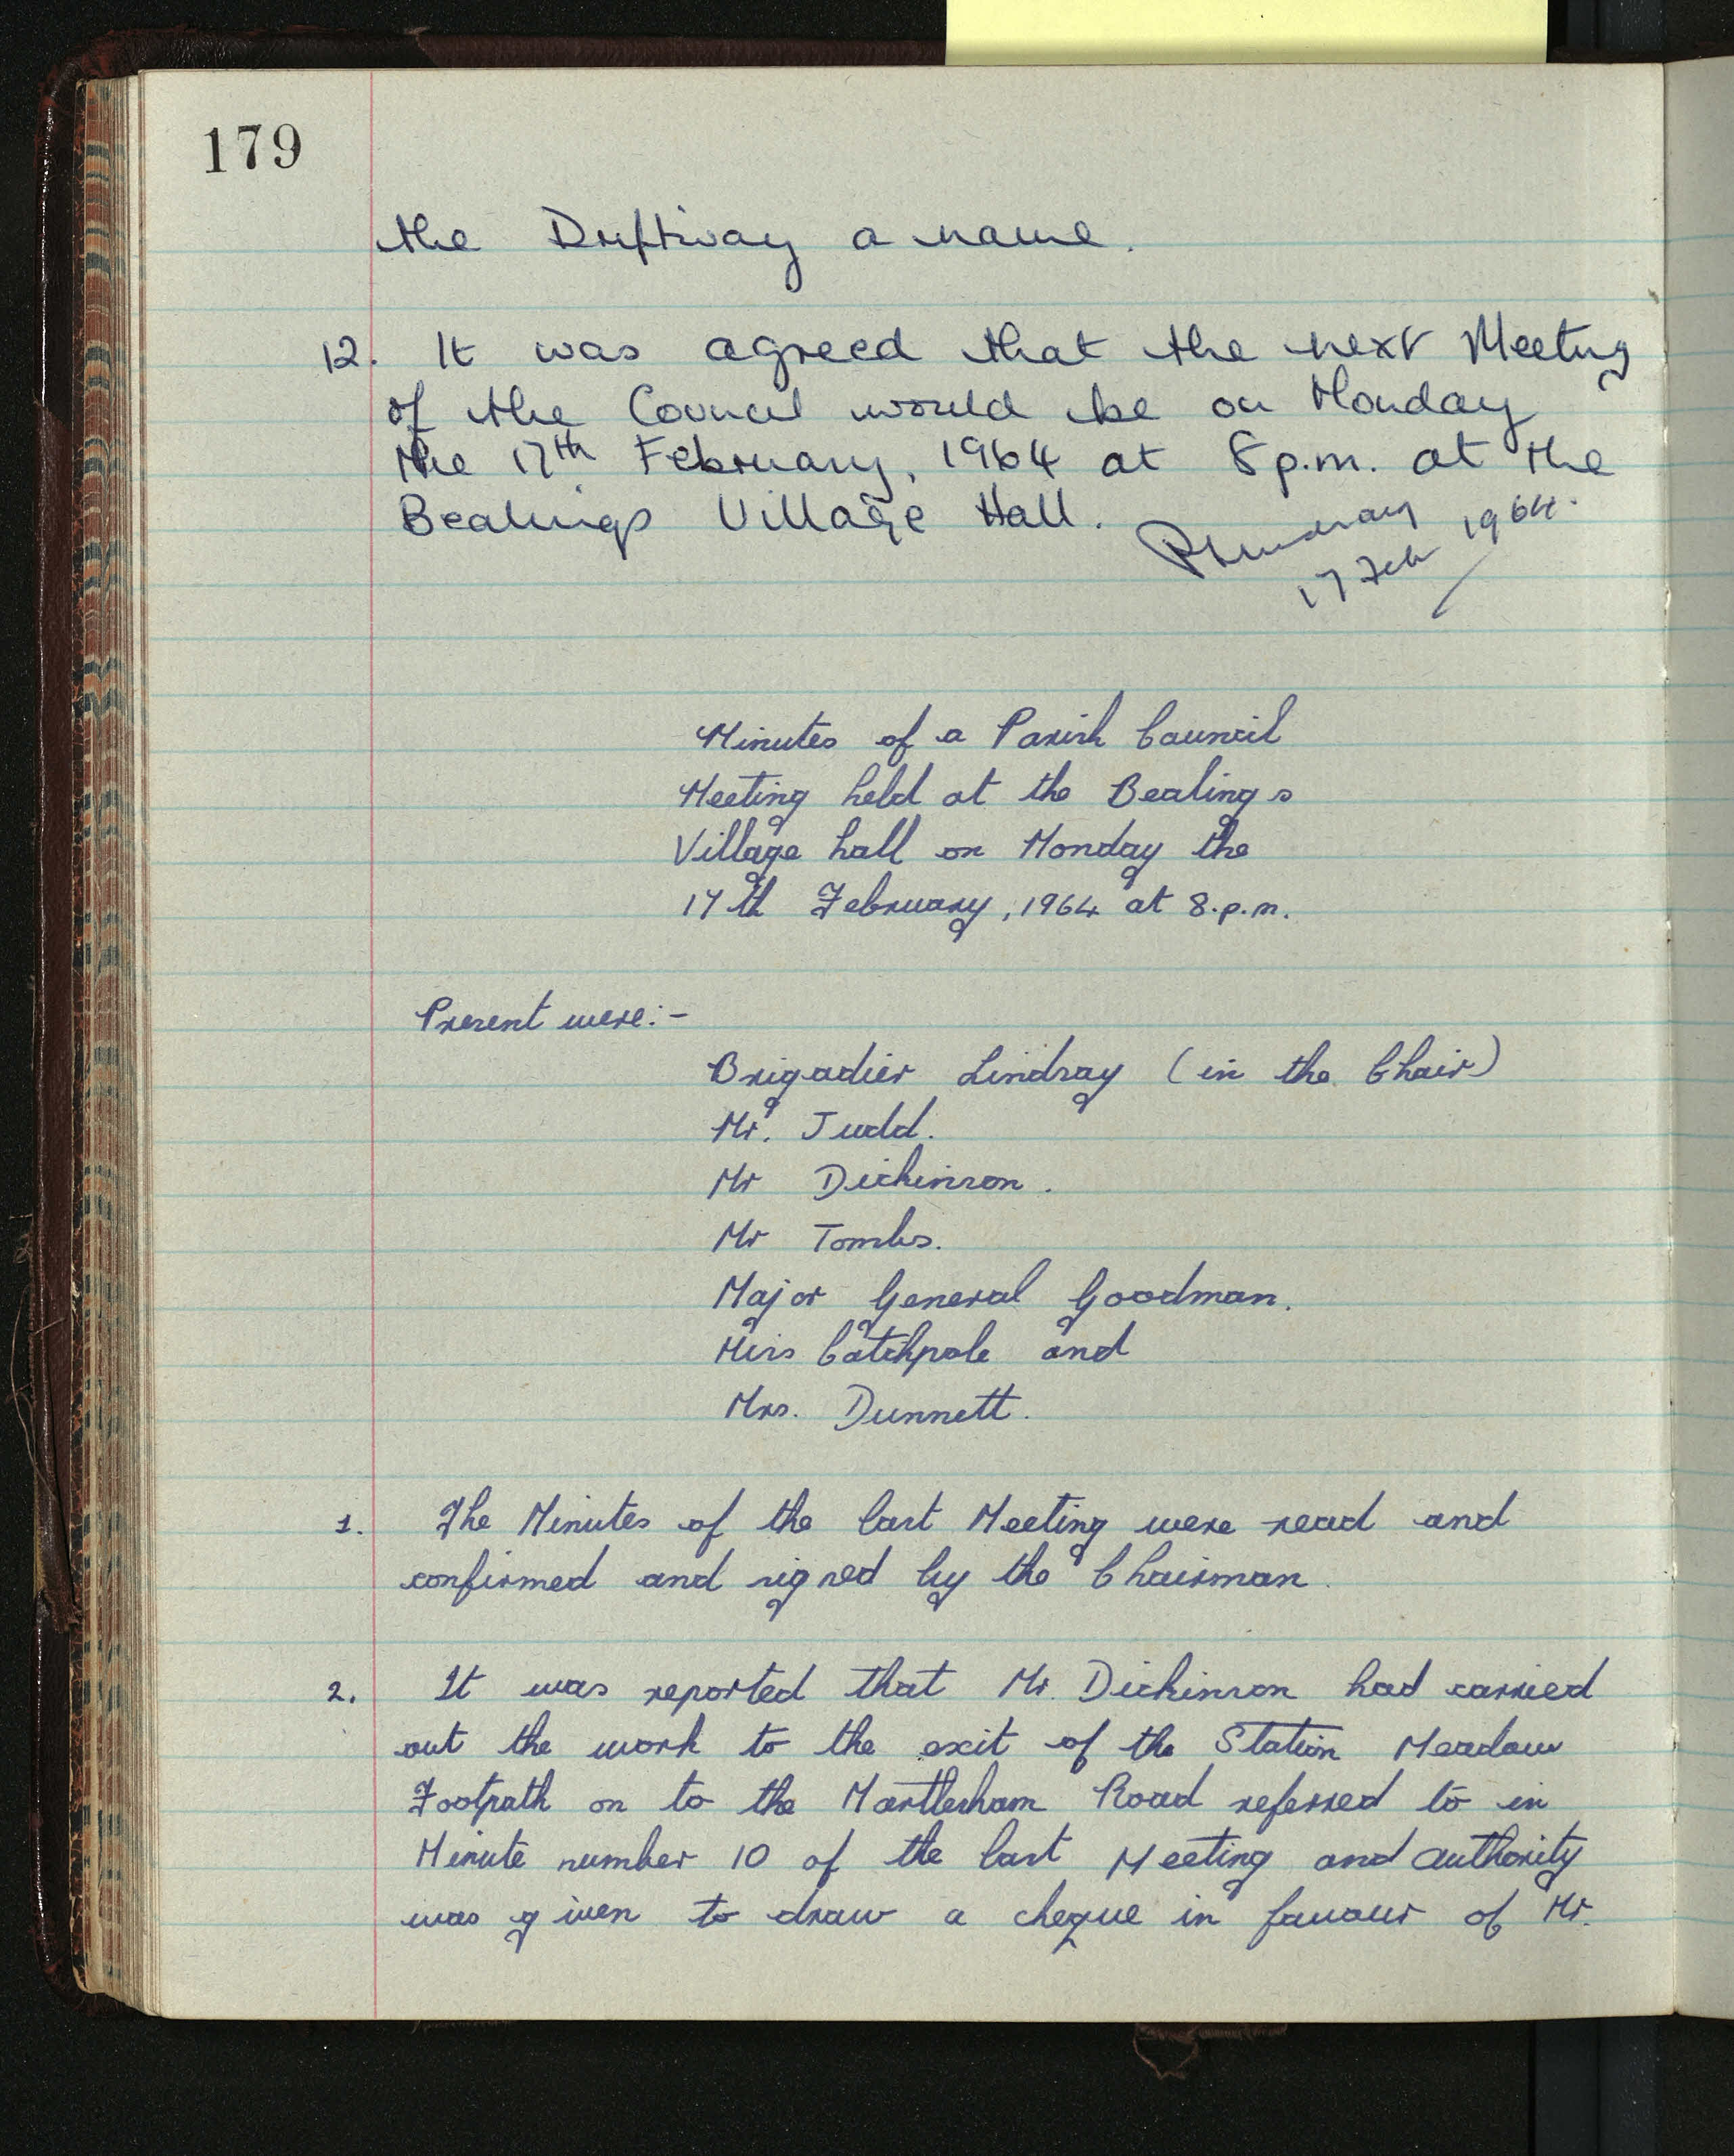 179
the Driftway a name.
12. It was agreed that the next Meeting
of the Council would be on Monday
the 17th February, 1964 at 8 p.m. at the
Bealings Village Hall.
17 Feb 1964.
Minutes of a Parish Council
Meeting held at the Bealings
Village hall on Monday the
17th February, 1964 at 8.p.m.
Present were:-
Brigadier Lindsay (in the Chair)
Mr. Judd.
Mr Dickinson.
Mr Tombs.
Major General Goodman.
Miss Catchpole and
Mrs. Dunnett.
1. The Minutes of the last Meeting were read and
confirmed and signed by the Chairman.
2. It was reported that Mr. Dickinson had carried
out the work to the exit of the Station Meadow
Footpath on to the Martlesham Road referred to in
Minute number 10 of the last Meeting and authority
was given to draw a cheque in favour of Mr.